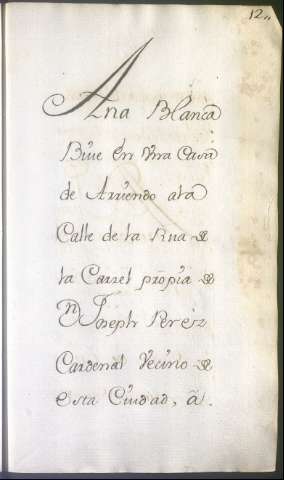 12,,
Ana Blanca
Bive En Vna Casa
de Arriendo ala
Calle de la Rua de
la Carzel propia de
Dn Joseph Perez
Cardenal Vecino de
esta Ciudad, ã.